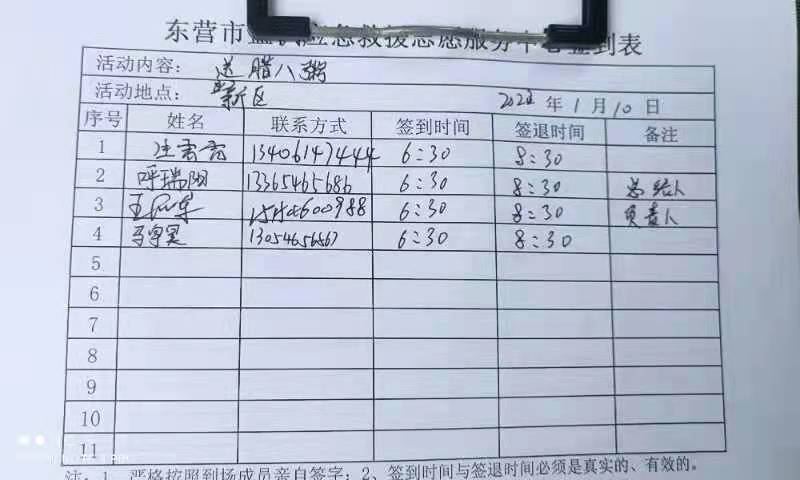 东营市蓝天应急救援志愿服务中心签到表
活动内容: 送腊八粥
活动地点: 新区
2022 年 1 月 10 日
序号 姓名 联系方式 签到时间 签退时间 备注
1 13406147444 6:30 8:30
2 呼瑞阳 13365465686 6:30 8:30 总结人
3 6:30 8:30 负责人
4 马宇昊 13054656867 6:30 8:30
5
6
7
8
9
10
11
注: 1、严格按照到场成员亲自签字; 2、签到时间与签退时间必须是真实的、有效的。